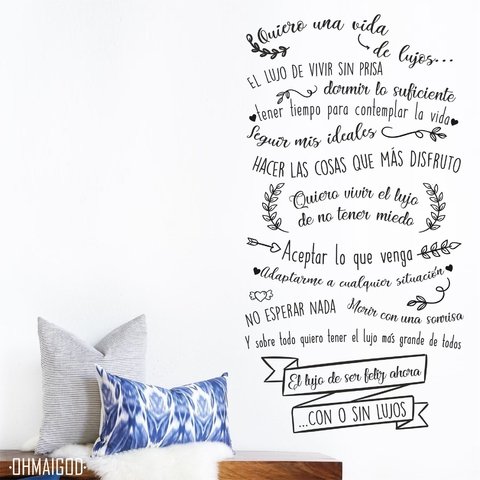 Quiero una vida
de lujos...
EL LUJO DE VIVIR SIN PRISA
dormir lo suficiente
tener tiempo para contemplar la vida
Seguir mis ideales
HACER LAS COSAS QUE MÁS DISFRUTO
Quiero vivir el lujo
de no tener miedo
Aceptar lo que venga
Adaptarme a cualquier situación
NO ESPERAR NADA Morir con una sonrisa
Y sobre todo quiero tener el lujo más grande de todos
El lujo de ser feliz ahora
...CON O SIN LUJOS
·OHMAIGOD·